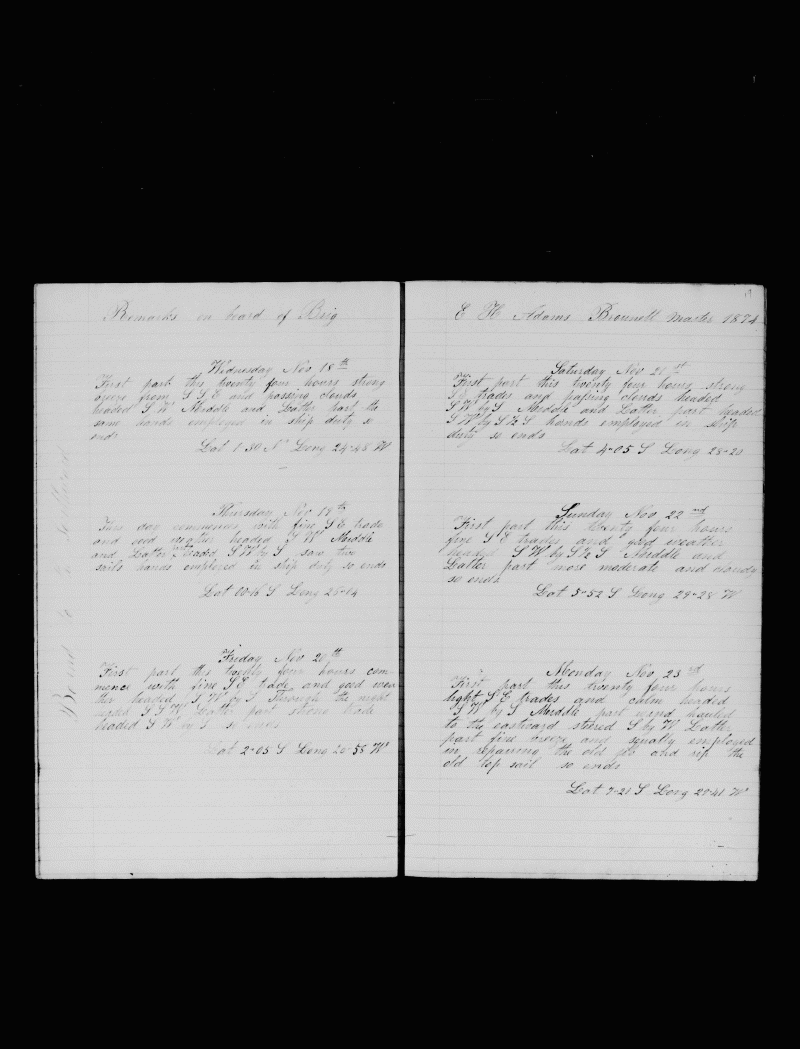 Remarks on board of Brig
Wednesday Nov 18th
First part this twenty four hours strong
breeze from S S E and passing clouds
headed S W Middle and Latter part the
same hands employed in ship duty so
ends
Lat 1-30 N Long 24-48 W
Thursday Nov 19th
This day commences with fine S E trade
and good weather headed S W Middle
and Latter part headed S W by S saw two
sails hands employed in ship duty so ends
Lat 00-16 S Long 25-14
Friday Nov 20th
First part this twenty four hours com-
mence with fine S E trade and good wea
ther headed S W by S Through the night
headed S S W Latter part strong trade
headed S W by S so ends
Lat 2-05 S Long 26-55 W
Bound to the Southward
E H Adams Brownell Master 1874
Saturday Nov 21st
First part this twenty four hours strong
S E trades and passing clouds headed
S W by S Middle and Latter part headed
S W by S ½ S hands employed in ship
duty so ends
Lat 4-05 S Long 28-20
Sunday Nov 22nd
First part this twenty four hours
fine S E trades and good weather
headed S W by S ½ S Middle and
Latter part more moderate and cloudy
so ends
Lat 5-52 S Long 29-28 W
Monday Nov 23rd
First part this twenty four hours
light S E trades and calm headed
S W by S Middle part wind hauled
to the eastward steered S by W Latter
part fine breeze and squally employed
in repairing the old jib and rip the
old top sail so ends
Lat 7-21 S Long 29-41 W